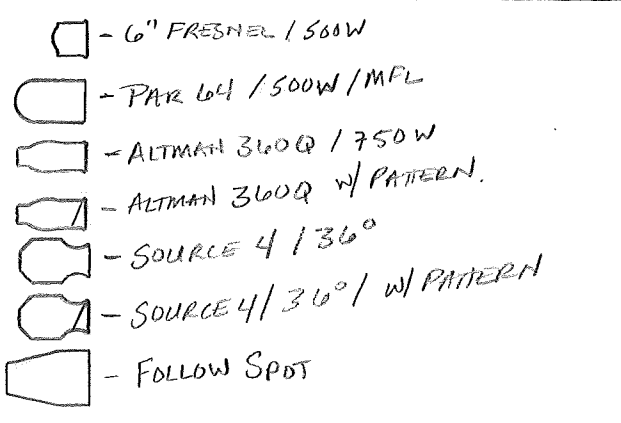 - 6" FRESNEL / 500W
- PAR 64 / 500W / MFL
- ALTMAN 360Q / 750W
- ALTMAN 360Q W/ PATTERN.
- SOURCE 4 / 36°
- SOURCE 4 / 36° / W/ PATTERN
- FOLLOW SPOT